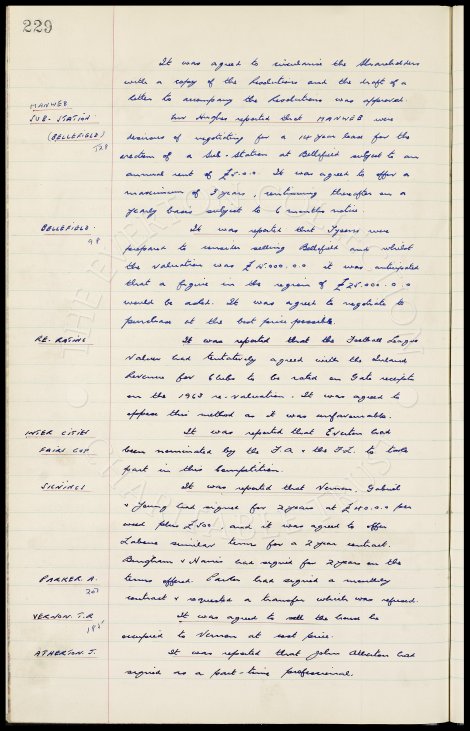 229
It was agreed to circularise the Shareholders
with a copy of the Resolutions and the draft of a
letter to accompany the Resolutions was approved.
MANWEB
SUB-STATION
(BELLEFIELD)
728
Mr Hughes reported that MANWEB were
desirous of negotiating for a 14 year lease for the
erection of a Sub-Station at Bellefield subject to an
annual rent of £5.0.0. It was agreed to offer a
maximum of 3 years, continuing thereafter on a
yearly basis subject to 6 months notice.
BELLEFIELD.
98
It was reported that Tysons were
prepared to consider selling Bellefield and whilst
the valuation was £15,000.0.0 it was anticipated
that a figure in the region of £25,000.0.0
would be asked. It was agreed to negotiate to
purchase at the best price possible.
RE-RATING
It was reported that the Football League
Valuer had tentatively agreed with the Inland
Revenue for Clubs to be rated on Gate receipts
on the 1963 re-valuation. It was agreed to
oppose this method as it was unfavourable.
INTER CITIES
FAIRS CUP
It was reported that Everton had
been nominated by the F.A. & the F.L. to take
part in this Competition.
SIGNINGS
It was reported that Vernon, Gabriel
& Young had signed for 2 years at per
week plus £500 and it was agreed to offer
Labone similar terms for a 2 year contract.
Bingham & Harris had signed for 2 years on the
terms offered. Parker had signed a monthly
contract & requested a transfer which was refused.
PARKER A.
207
VERNON T.R
195
It was agreed to sell the house he
occupied to Vernon at cost price.
ATHERTON. J.
It was reported that John Atherton had
signed as a part-time professional.
THE EVERTON COLLECTION
CHARITABLE TRUST